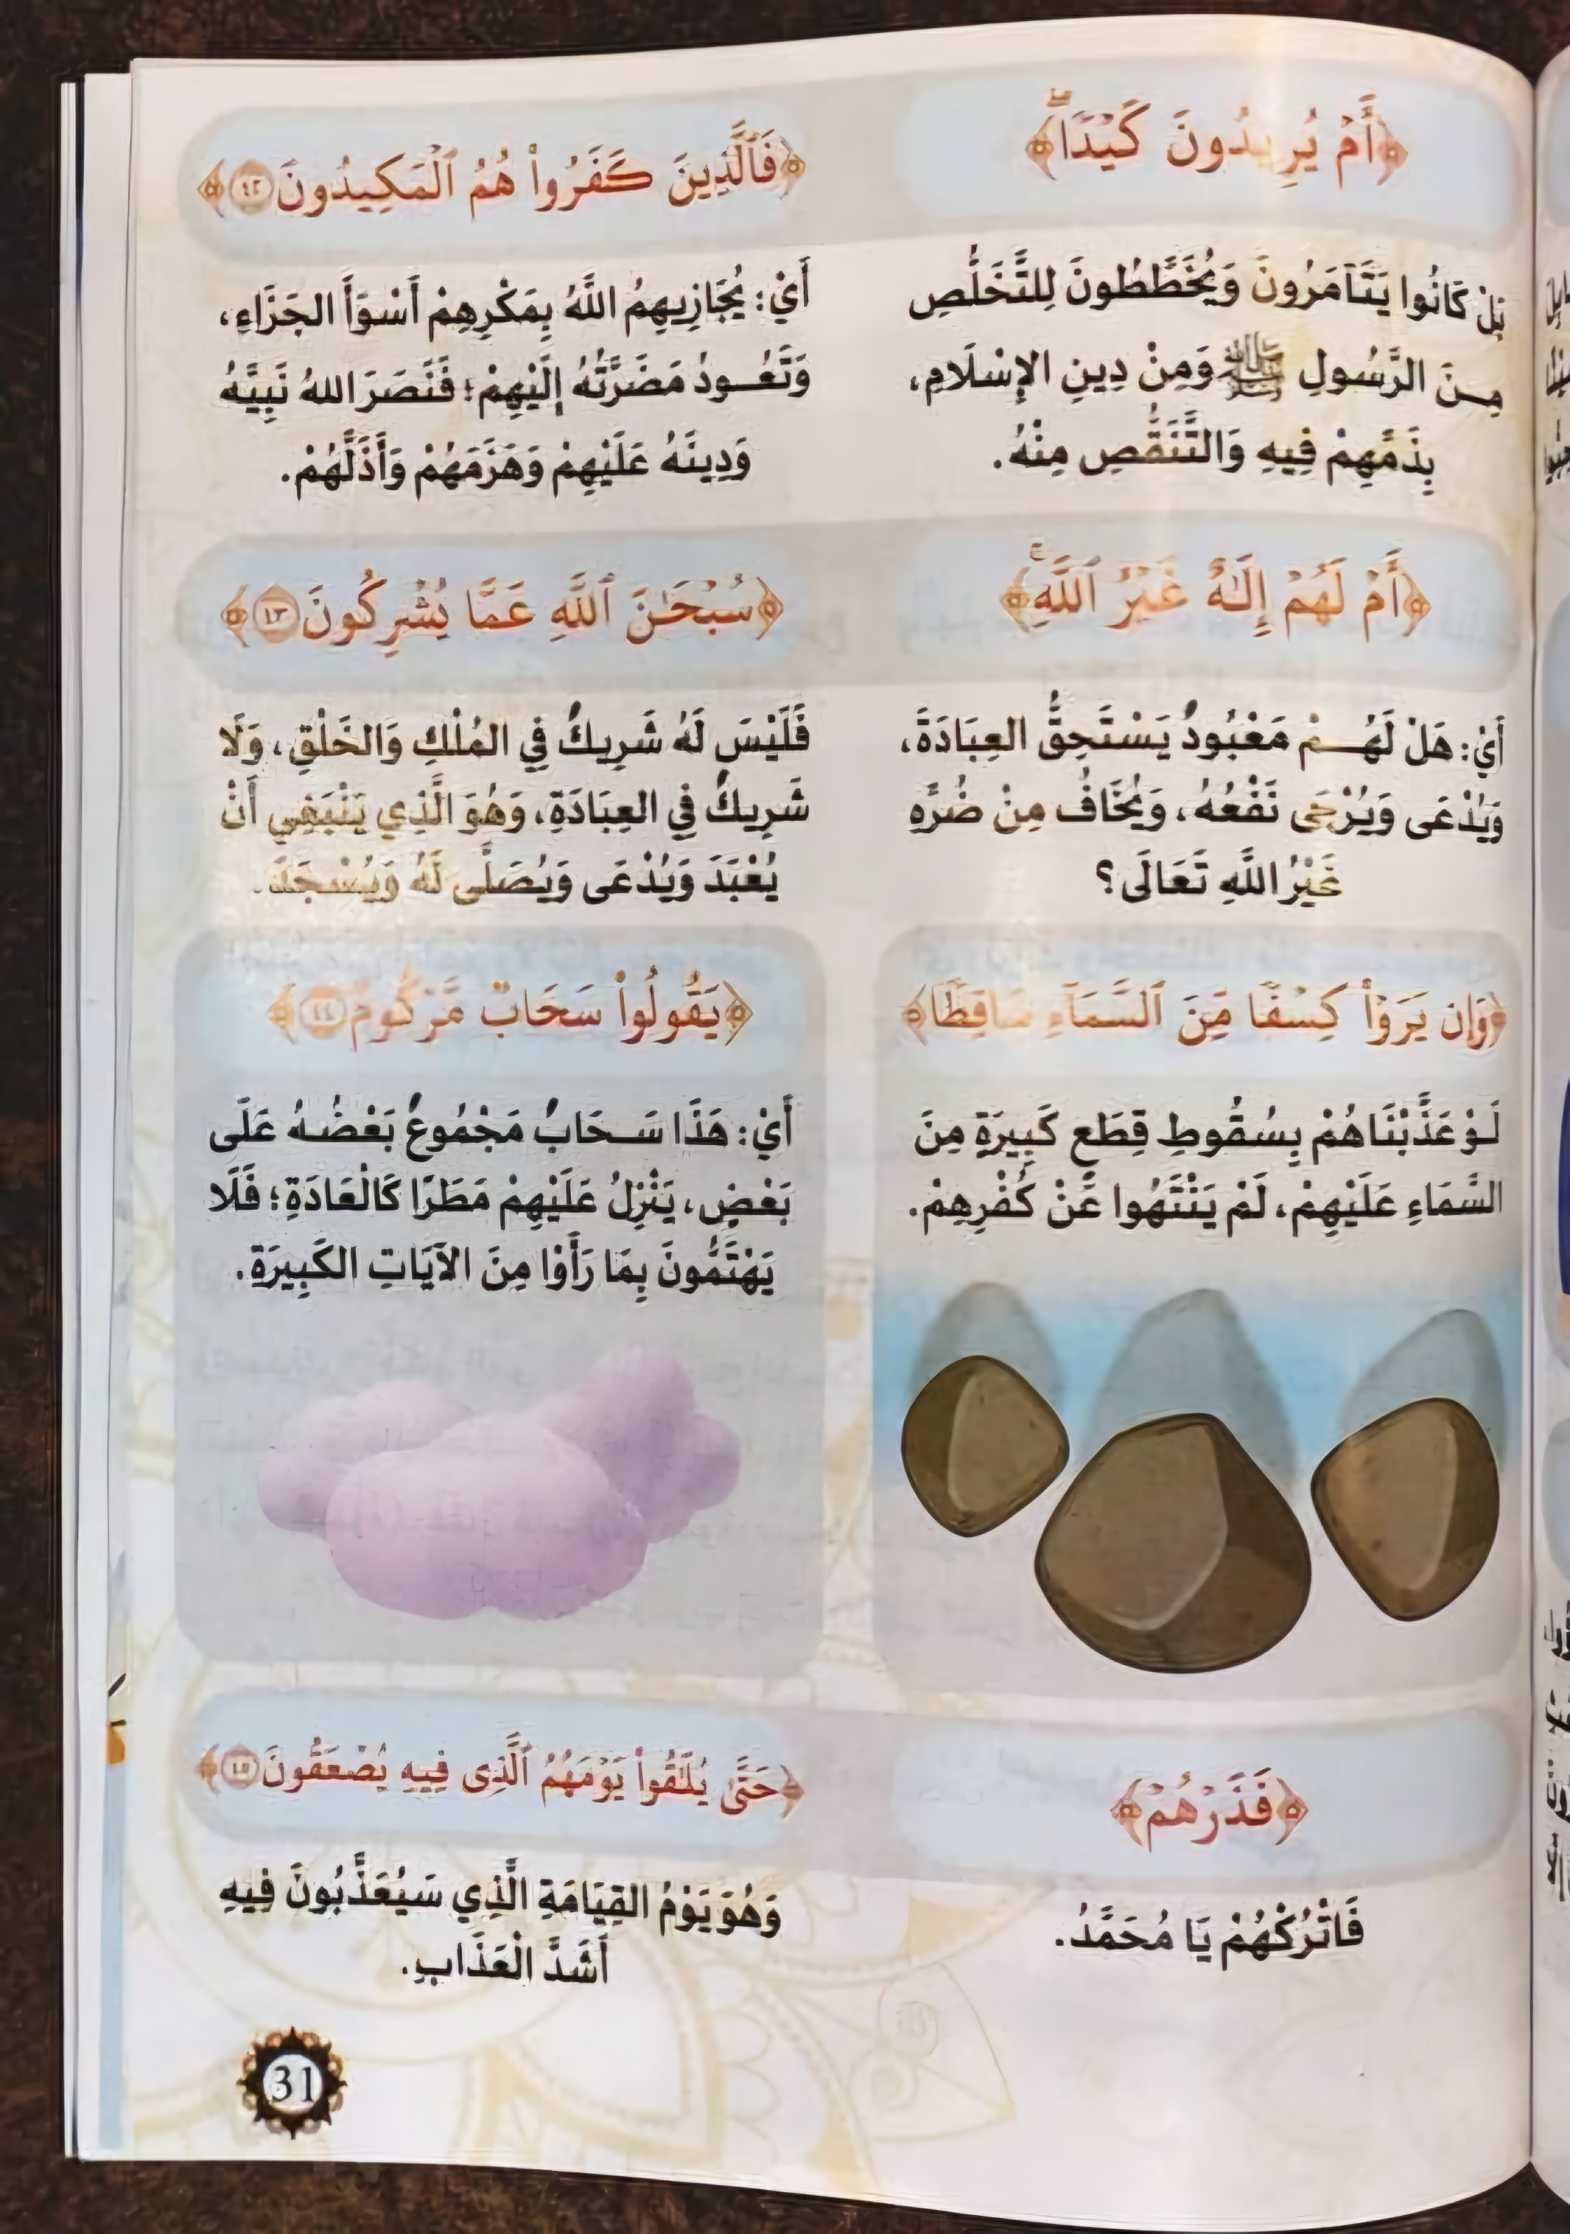 ﴿أَمۡ يُرِيدُونَ كَيۡدٗاۖ﴾
بَلْ كَانُوا يَتَآمَرُونَ وَيُخَطِّطُونَ لِلتَّخَلُّصِ
مِنَ الرَّسُولِ ﷺ وَمِنْ دِينِ الإِسْلَامِ،
بِذَمِّهِمْ فِيهِ وَالتَّنَقُّصِ مِنْهُ.
﴿فَٱلَّذِينَ كَفَرُواْ هُمُ ٱلۡمَكِيدُونَ ٤٢﴾
أَيْ: يُجَازِيهِمُ اللَّهُ بِمَكْرِهِمْ أَسْوَأَ الجَزَاءِ،
وَتَعُودُ مَضَرَّتُهُ إِلَيْهِمْ؛ فَنَصَرَ اللهُ نَبِيَّهُ
وَدِينَهُ عَلَيْهِمْ وَهَزَمَهُمْ وَأَذَلَّهُمْ.
﴿أَمۡ لَهُمۡ إِلَٰهٌ غَيۡرُ ٱللَّهِۚ﴾
أَيْ: هَلْ لَهُمْ مَعْبُودٌ يَسْتَحِقُّ العِبَادَةَ،
وَيُدْعَى وَيُرْجَى نَفْعُهُ، وَيُخَافُ مِنْ ضُرِّهِ
غَيْرُ اللَّهِ تَعَالَى؟
﴿سُبۡحَٰنَ ٱللَّهِ عَمَّا يُشۡرِكُونَ ٤٣﴾
فَلَيْسَ لَهُ شَرِيكٌ فِي المُلْكِ وَالخَلْقِ، وَلَا
شَرِيكٌ فِي العِبَادَةِ، وَهُوَ الَّذِي يَنْبَغِي أَنْ
يُعْبَدَ وَيُدْعَى وَيُصَلَّى لَهُ وَيُسْجَدَ.
﴿وَإِن يَرَوۡاْ كِسۡفٗا مِّنَ ٱلسَّمَآءِ سَاقِطٗا﴾
لَوْ عَذَّبْنَاهُمْ بِسُقُوطِ قِطَعٍ كَبِيرَةٍ مِنَ
السَّمَاءِ عَلَيْهِمْ، لَمْ يَنْتَهُوا عَنْ كُفْرِهِمْ.
﴿يَقُولُواْ سَحَابٞ مَّرۡكُومٞ ٤٤﴾
أَيْ: هَذَا سَحَابٌ مَجْمُوعٌ بَعْضُهُ عَلَى
بَعْضٍ، يَنْزِلُ عَلَيْهِمْ مَطَرًا كَالْعَادَةِ؛ فَلَا
يَهْتَمُّونَ بِمَا رَأَوْا مِنَ الآيَاتِ الكَبِيرَةِ.
﴿فَذَرۡهُمۡ﴾
فَاتْرُكْهُمْ يَا مُحَمَّدُ.
﴿حَتَّىٰ يُلَٰقُواْ يَوۡمَهُمُ ٱلَّذِي فِيهِ يُصۡعَقُونَ ٤٥﴾
وَهُوَ يَوْمُ القِيَامَةِ الَّذِي سَيُعَذَّبُونَ فِيهِ
أَشَدَّ الْعَذَابِ.
31